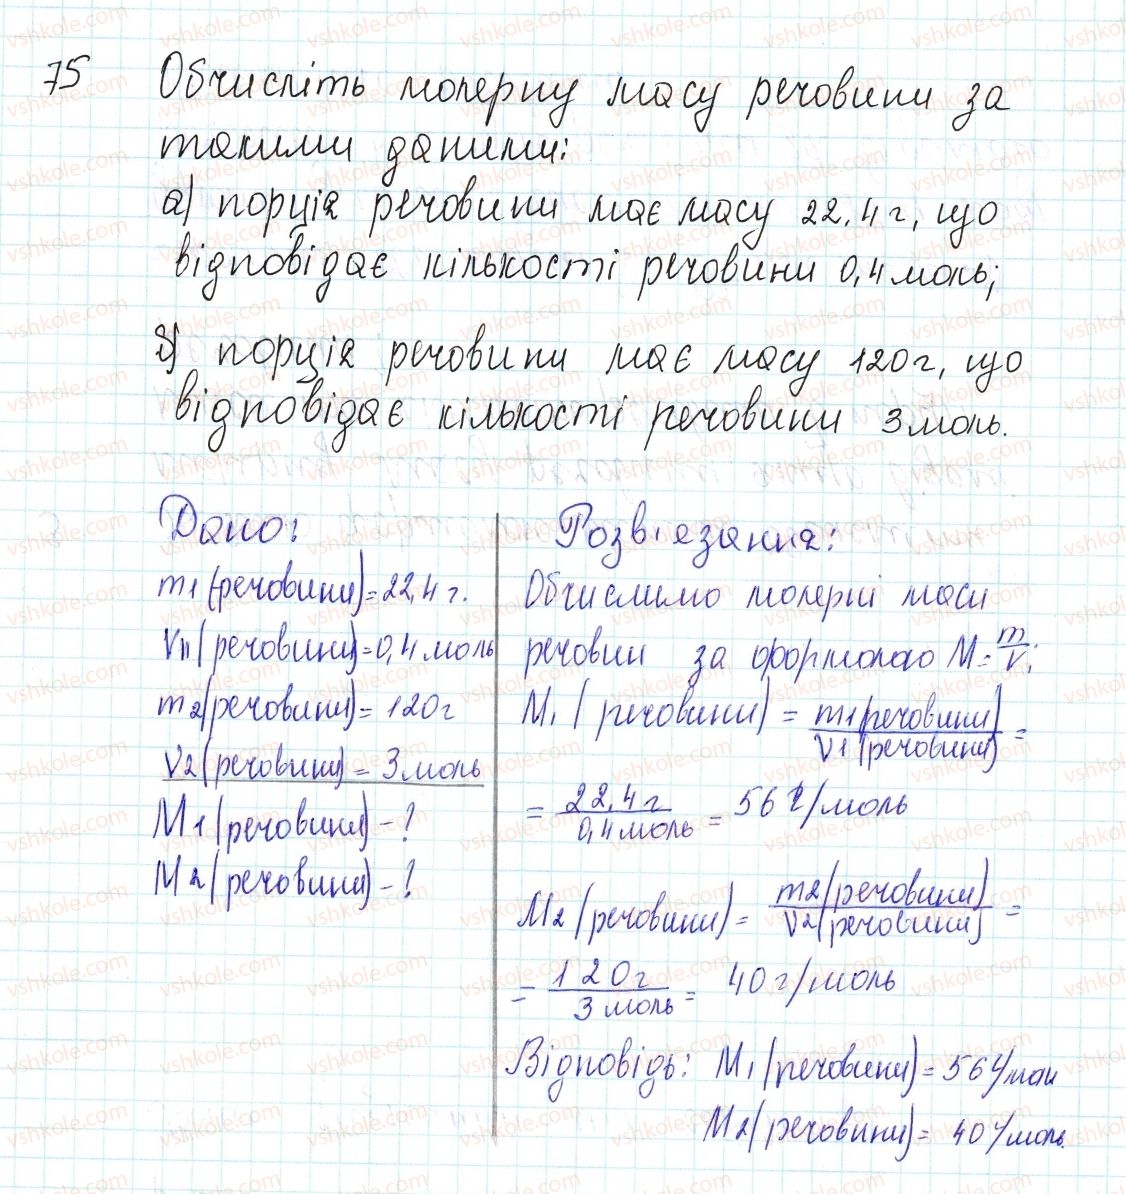 75 Обчисліть молярну масу речовини за
такими даними:
а) порція речовини має масу 22,4 г, що
відповідає кількості речовини 0,4 моль;
б) порція речовини має масу 120 г, що
відповідає кількості речовини 3 моль.
Дано:
m1 (речовини) = 22,4 г.
V1 (речовини) = 0,4 моль
m2 (речовини) = 120 г
V2 (речовини) = 3 моль
M1 (речовини) - ?
M2 (речовини) - ?
Розв'язання:
Обчислимо молярні маси
речовин за формулою M = m/V;
M1 (речовини) = m1 (речовини) / V1 (речовини) =
= 22,4 г / 0,4 моль = 56 г/моль
M2 (речовини) = m2 (речовини) / V2 (речовини) =
= 120 г / 3 моль = 40 г/моль
Відповідь: M1 (речовини) = 56 г/моль
M2 (речовини) = 40 г/моль.
vshkole.com